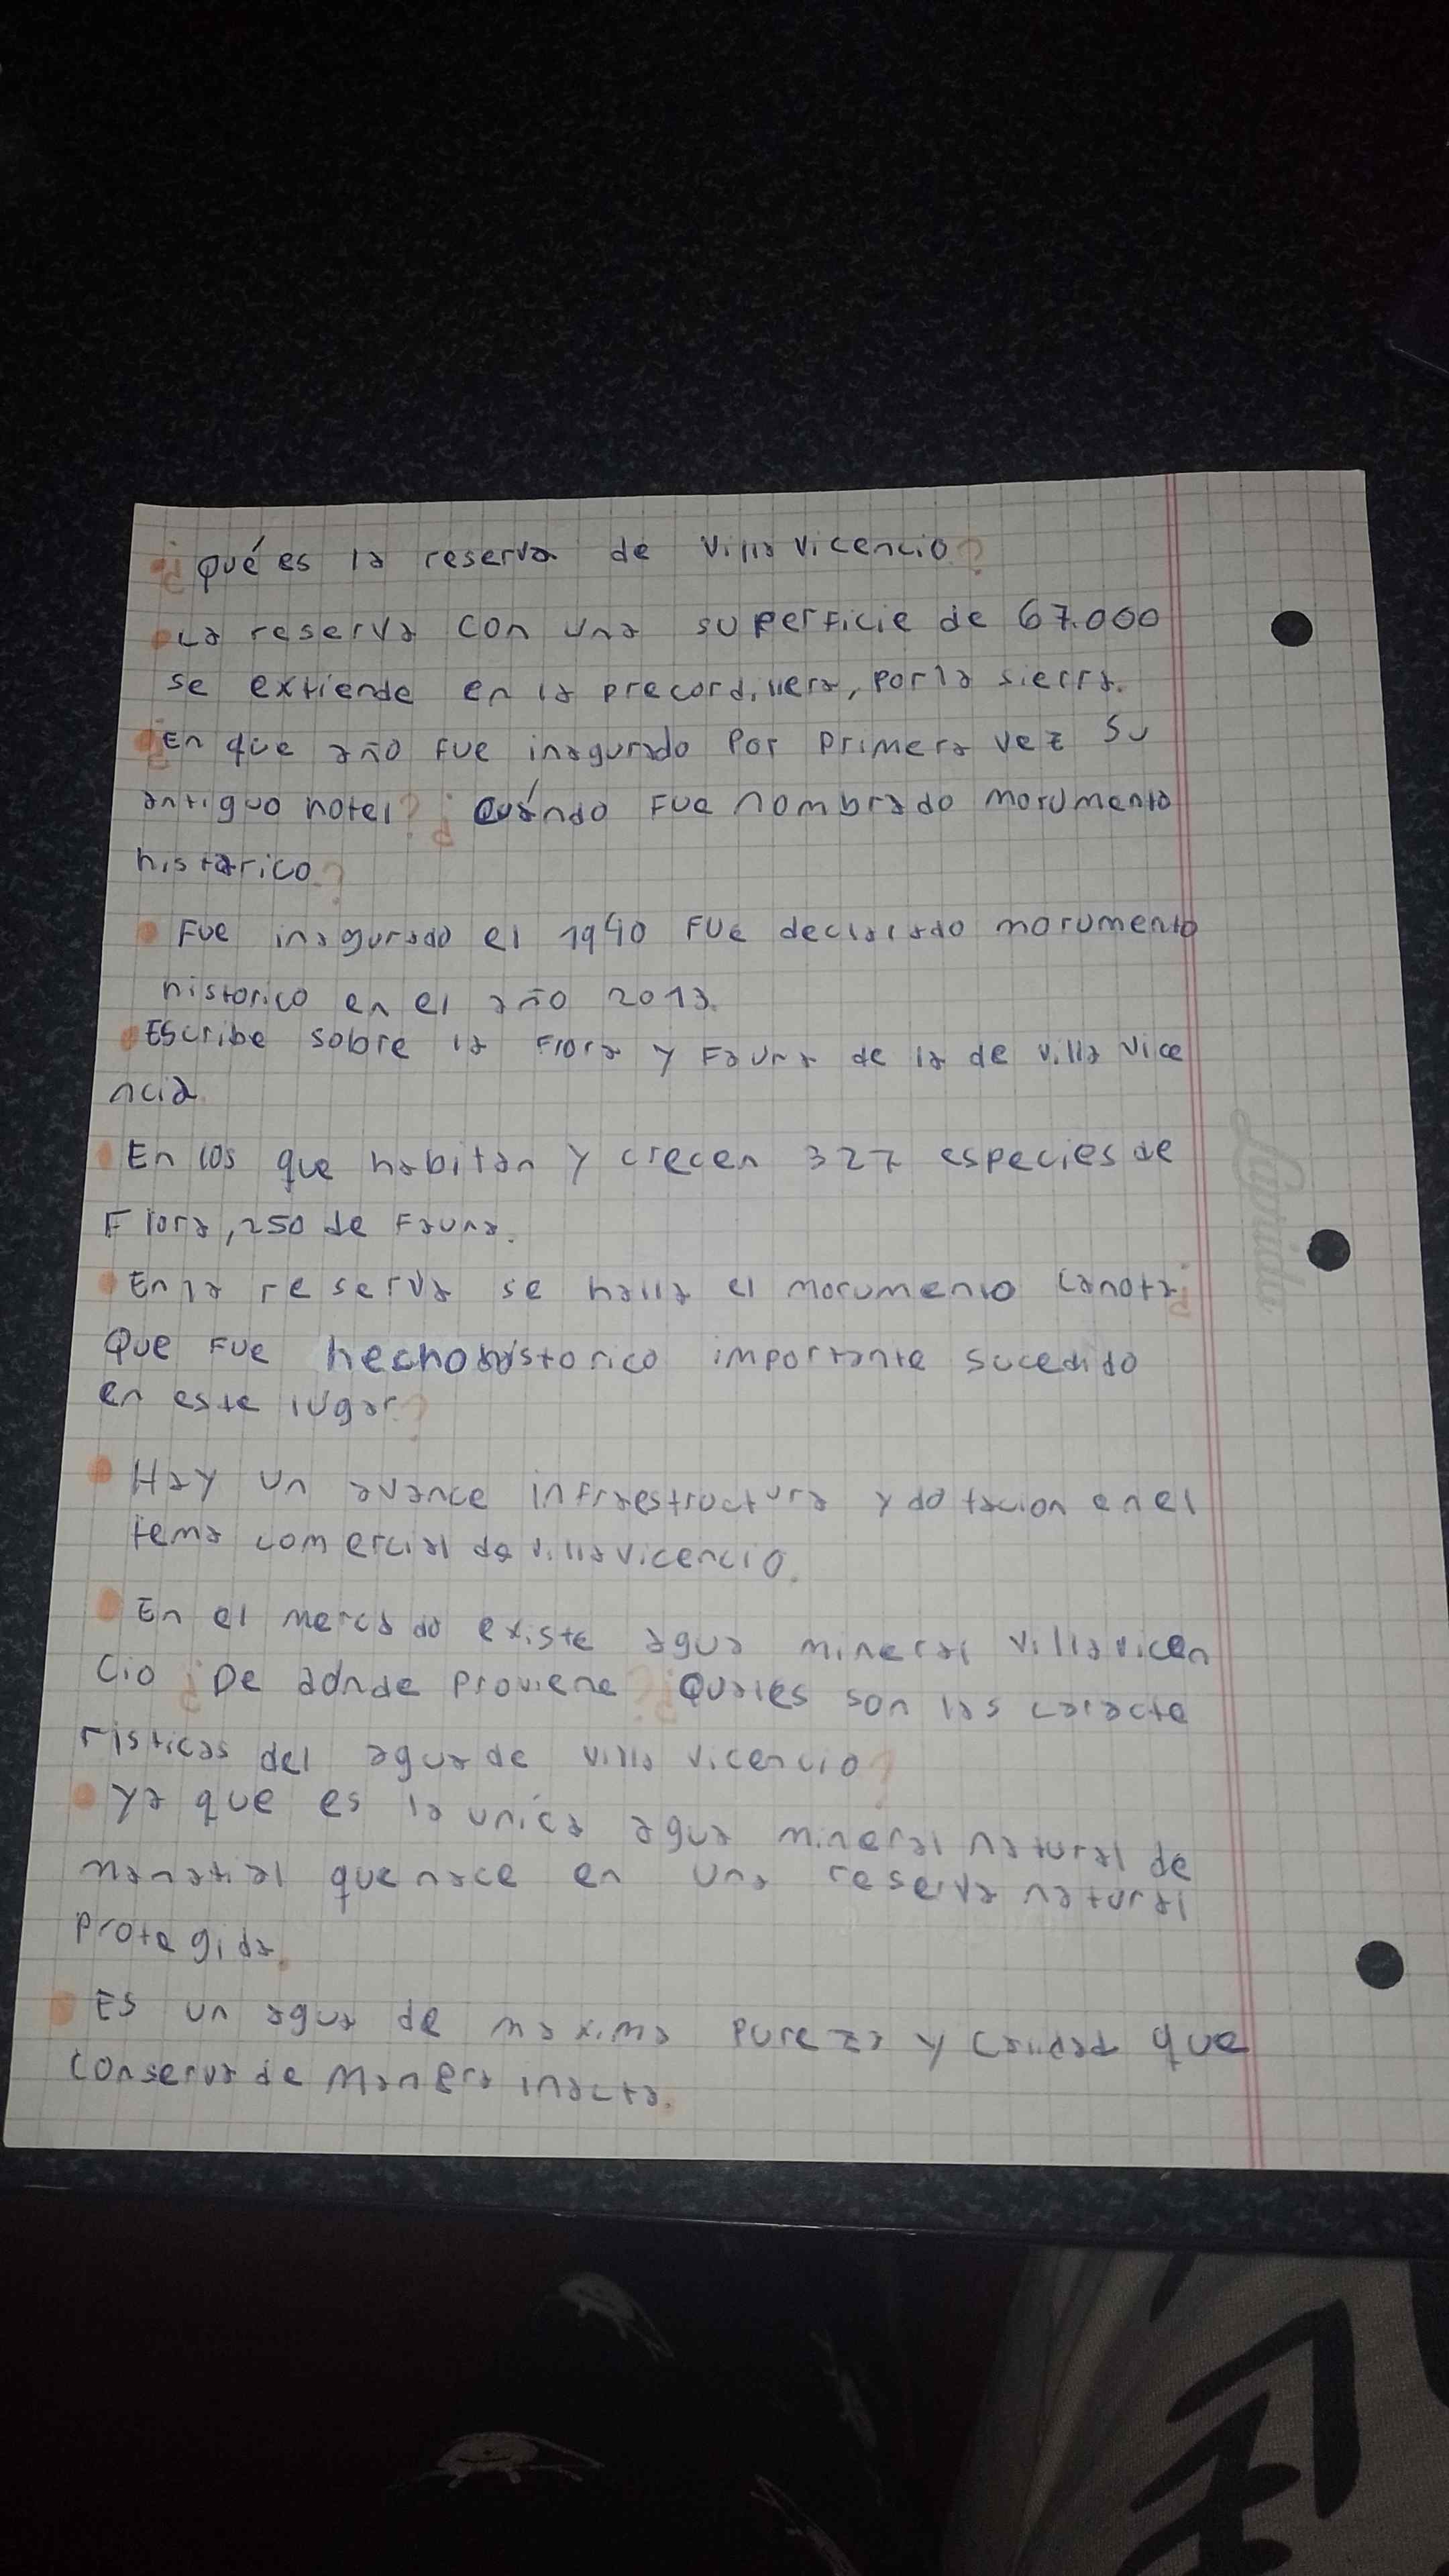 ¿Qué es la reserva de Villa Vicencio?
La reserva con una superficie de 67.000
se extiende en la precordillera, por la sierra.
¿En que año fue inagurado por primera vez su
antiguo hotel? ¿Cuándo fue nombrado morumento
historico?
Fue inagurado el 1940 fue declarado morumento
historico en el año 2013.
Escribe sobre la flora y fauna de la de villa vice
ncia.
En los que habitan y crecen 327 especies de
Flora, 250 de fauna.
En la reserva se halla el morumento canota ¿
Que fue hecho historico importante sucedido
en este lugar?
Hay un avance infraestructura y dotacion en el
tema comercial de villavicencio.
En el mercado existe agua mineral villavicen
cio ¿De adnde proviene? ¿Quales son las caracte
risticas del agua de villa vicencio?
Ya que es la unica agua mineral natural de
manatial que nace en una reserva natural
protegida.
Es un agua de maxima pureza y calidad que
conserva de manera inacta.
Lyrida